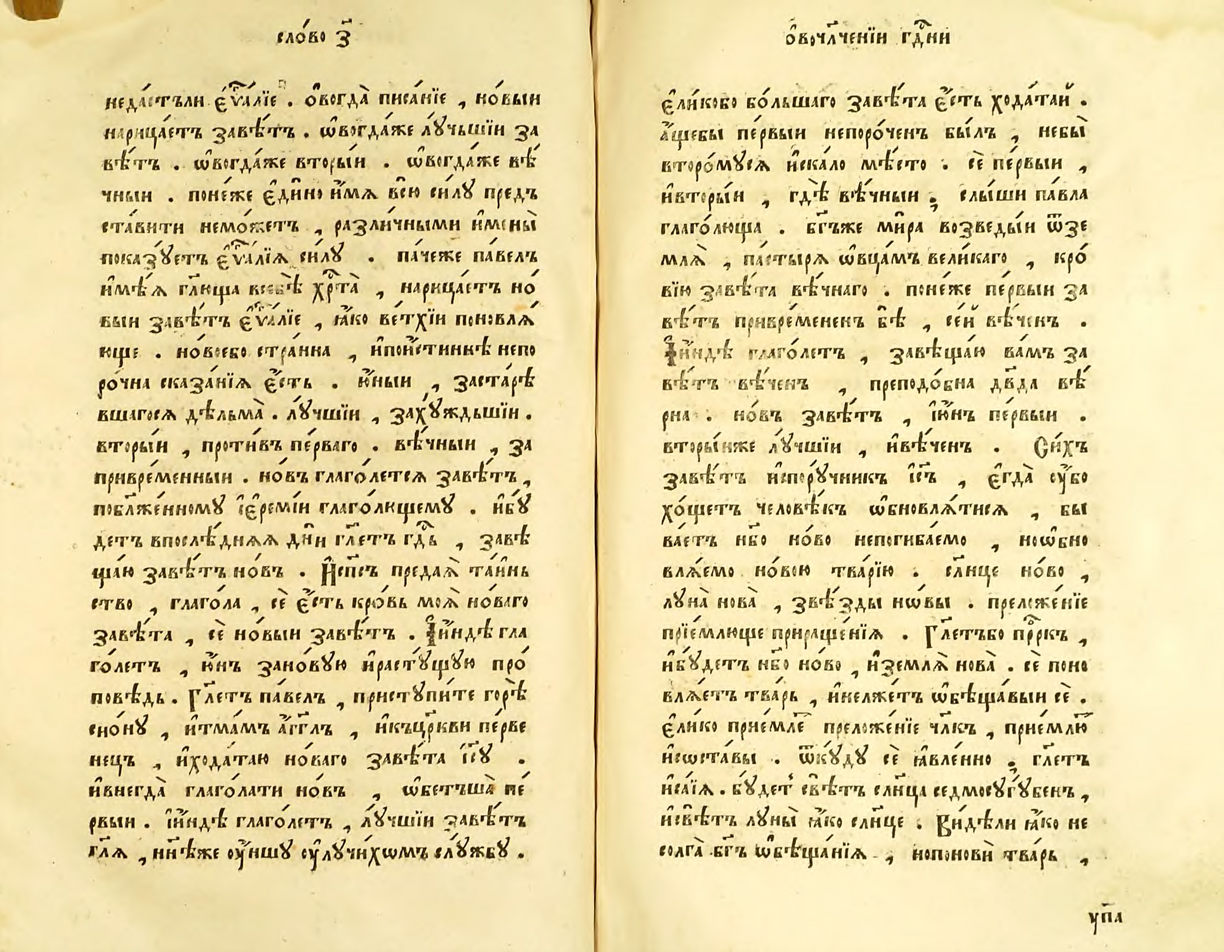 сло́во з҃
неда́стъли є҆ѵⷢ҇а́лїе . ѻ҆вогда̀ писа́нїе , но́выи
нарица́етъ завѣ́тъ . ѡ҆вогда́же лꙋ́чьшїи за
вѣ́тъ . ѡ҆вогда́же вторы́и . ѡ҆вогда́же вѣ́
чныи . поне́же є҆ди́но и҆́мѧ всю̀ си́лꙋ предъ
ста́вити немо́жетъ , разли́чными и҆мены̀
показꙋ́етъ є҆ѵⷢ҇а́лїѧ си́лꙋ . па́чеже па́велъ
и҆мѣ́ѧ гл҃юща всебѣ̀ хрⷭ҇та̀ , нарица́етъ но́
выи завѣ́тъ є҆ѵⷢ҇а́лїе , ꙗ҆́ко ве́тхїи поновлѧ́
юще . но́воебо стра́нна , и҆пои҆́стиннѣ непо
ро́чна сказа́нїѧ є҆́сть . ю҆́ныи , застарѣ́
вшагосѧ дѣ́льма̀ . лꙋ́чшїи , захꙋ́ждьшїи .
вторы́и , проти́въ пе́рваго . вѣ́чныи , за
привре́менныи . но́въ глаго́летсѧ завѣ́тъ ,
побл҃же́нномꙋ і҆єремі́и глаго́лющемꙋ . и҆бꙋ́
детъ впослѣ́днѧѧ дн҃и гл҃етъ гдⷭ҇ь , завѣ
ща́ю завѣ́тъ но́въ . И҆сп҃съ преда́ѧ та́инь
ство , глаго́ла , сѐ є҆́сть кро́вь моѧ̀ но́ваго
завѣ́та , сѐ но́выи завѣ́тъ . І҆и҆́ндѣ гла
го́летъ , ю҆́нъ зано́вꙋю и҆растꙋ́щꙋю про́
повѣдь . Гл҃етъ па́велъ , пристꙋпи́те горѣ̀
сио́нꙋ , и҆тма́мъ а҆́гг҃лъ , и҆къцр҃кви пе́рве
нецъ , и҆хода́таю но́ваго завѣ́та і҆с҃ꙋ .
и҆внегда̀ глаго́лати но́въ , ѡ҆бетъша̀ пе́
рвыи . і҆и҆́ндѣ глаго́летъ , лꙋ́чшїи завѣ́тъ
гл҃ѧ , нн҃ѣже оу҆́ншꙋ оу҆лꙋчи́хѡмъ слꙋ́жбꙋ .
ѻ҆вочл҃че́нїи гдⷭ҇ни
є҆ли́кобо бо́льшаго завѣ́та є҆́сть хода́тай .
а҆́щебы пе́рвыи непоро́ченъ бы́лъ , небы̀
второ́мꙋсѧ и҆ска́ло мѣ́сто . сѐ пе́рвыи ,
и҆вторы́и , гдѣ̀ вѣ́чныи ; слы́ши па́вла
глаго́люща . бг҃ъже ми́ра возведы́и ѿзе
млѧ̀ , па́стырѧ ѻ҆вца́мъ вели́каго , кро́
вїю завѣ́та вѣ́чнаго . поне́же пе́рвыи за
вѣ́тъ привре́мененъ бѣ̀ , се́й вѣ́ченъ .
І҆и҆́ндѣ глаго́летъ , завѣща́ю ва́мъ за
вѣ́тъ вѣ́ченъ , преподо́бна дв҃да вѣ́
рна . но́въ завѣ́тъ , і҆ю҆́нъ пе́рвыи .
вторы́иже лꙋ́чшїи , и҆вѣ́ченъ . Си́хъ
завѣ́тъ и҆спорꙋ́чникъ і҆с҃ъ , є҆гда̀ оу҆́бо
хо́щетъ человѣ́къ ѡ҆бновлѧ́тисѧ , бы
ва́етъ нб҃о но́во непогиба́емо , ноѡ҆бно
влѧ́емо но́вою тва́рїю . сл҃нце но́во ,
лꙋна̀ нова̀ , звѣ́зды но́вы . преложе́нїе
прїе́млюще прираще́нїѧ . Гл҃етъбо прⷪ҇ркъ ,
и҆бꙋ́детъ нб҃о но́во , и҆землѧ̀ нова̀ . сѐ поно
влѧ́етъ тва́рь , и҆нелжетъ ѡ҆бѣща́выи сѐ .
є҆ли́ко прие́млетъ преложе́нїе чл҃къ , прие́млю
и҆соста́вы . ѿкꙋ́дꙋ сѐ ꙗ҆вле́нно , гл҃етъ
и҆са́їѧ . бꙋ́детъ свѣ́тъ сл҃нца седмосꙋгꙋ́бенъ ,
и҆свѣ́тъ лꙋны̀ ꙗ҆́ко сл҃нце . Ви́дѣли ꙗ҆́ко не
солга̀ бг҃ъ ѡ҆бѣща́нїѧ , нопоновѝ тва́рь ,
уп҃а